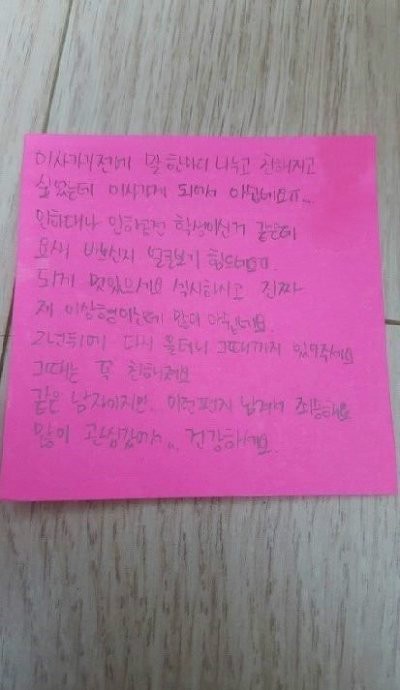 이사가기전에 말 한마디 나누고 친해지고
싶었는데 이사가게 되어서 아쉽네요ㅠ..
인하대나 인하공전 학생이신거 같은데
요새 바쁘신지 얼굴보기 힘드네요ㅠ.
되게 멋있으세요 섹시하시고 진짜
제 이상형이신데 많이 아쉽네요.
2년뒤에 다시 올테니 그때까지 있어주세요
그때는 꼭 친해져요
같은 남자이지만.. 이런편지 남겨서 죄송해요
많이 관심갔어요.. 건강하세요.